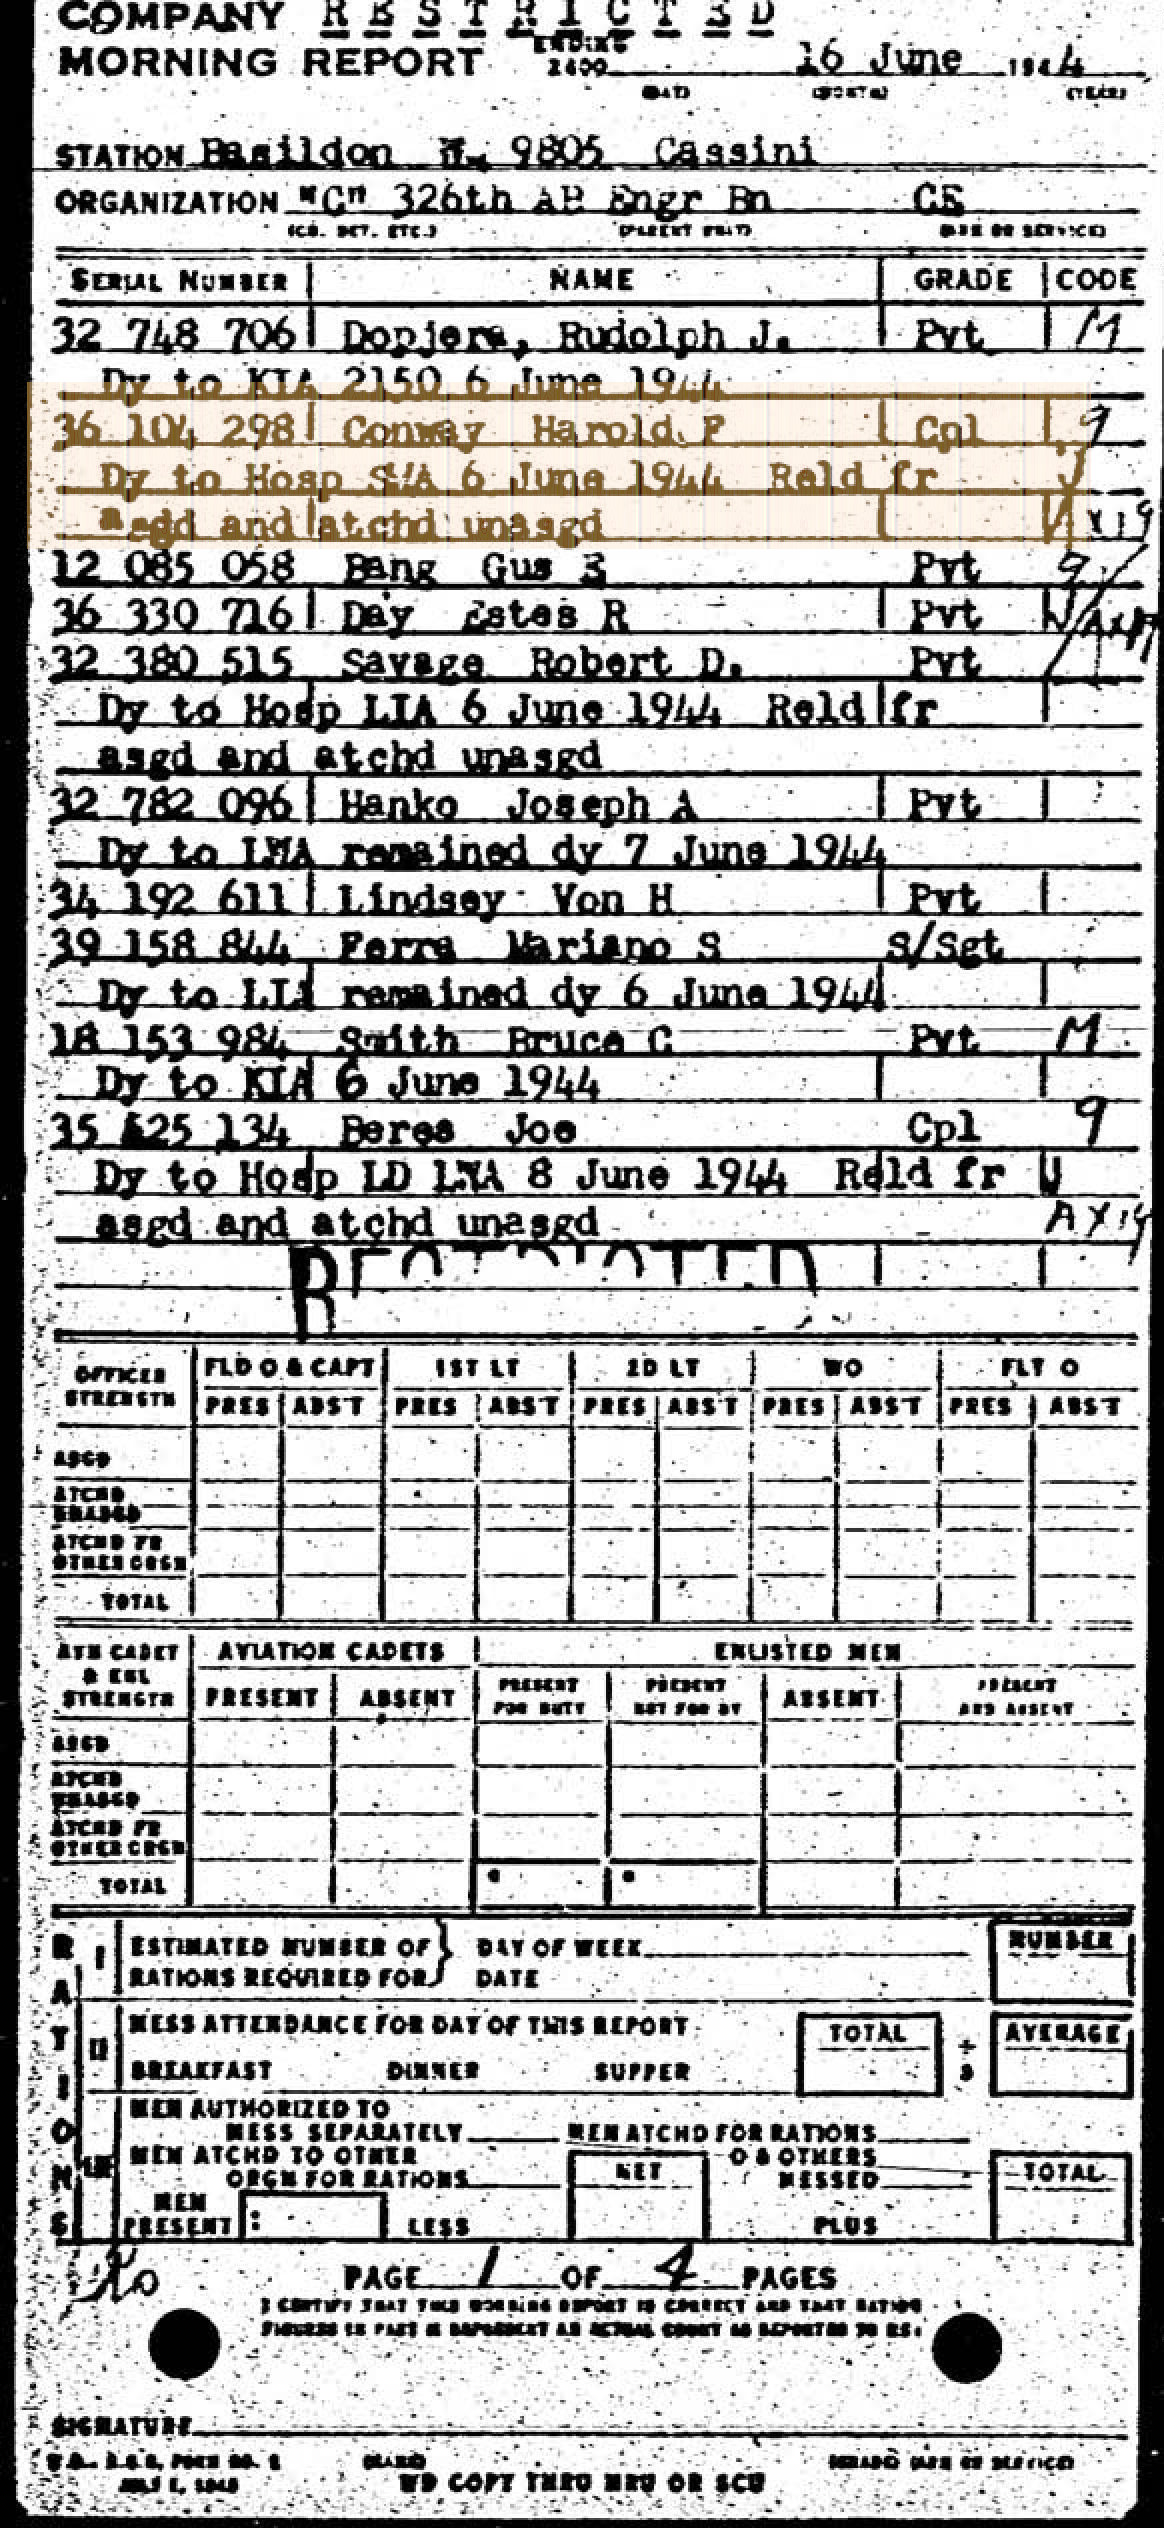 COMPANY RESTRICTED
MORNING REPORT ENDING 2400 16 June 1944
(DAY) (MONTH) (YEAR)
STATION Basildon 9805 Cassini
ORGANIZATION "C" 326th AB Engr Bn CE
(CO. DET. ETC.) (PARENT UNIT) (ARM OR SERVICE)
SERIAL NUMBER NAME GRADE CODE
32 748 706 Dopjera, Rudolph J. Pvt M
Dy to KIA 2150 6 June 1944
36 104 298 Conway Harold F Cpl 9
Dy to Hosp SWA 6 June 1944 Reld fr J
asgd and atchd unasgd
12 085 058 Bang Gus E Pvt 9
36 330 716 Day Estes R Pvt
32 380 515 Savage Robert D. Pvt
Dy to Hosp LIA 6 June 1944 Reld fr
asgd and atchd unasgd
32 782 096 Hanko Joseph A Pvt
Dy to LWA remained dy 7 June 1944
34 192 611 Lindsey Von H Pvt
39 158 844 Ferra Mariano S S/Sgt
Dy to LIA remained dy 6 June 1944
18 153 984 Smith Bruce C Pvt M
Dy to KIA 6 June 1944
35 525 134 Beres Joe Cpl 9
Dy to Hosp LD LWA 8 June 1944 Reld fr
asgd and atchd unasgd
RESTRICTED
OFFICER STRENGTH FLD O & CAPT 1ST LT 2D LT WO FLT O
PRES ABS'T PRES ABS'T PRES ABS'T PRES ABS'T PRES ABS'T
ASGD
ATCHD UNASGD
ATCHD FR OTHER ORGN
TOTAL
AVN CADET & ENL STRENGTH AVIATION CADETS ENLISTED MEN
PRESENT ABSENT PRESENT FOR DUTY PRESENT NOT FOR DY ABSENT PRESENT AND ABSENT
ASGD
ATCHD UNASGD
ATCHD FR OTHER ORGN
TOTAL * *
RATIONS
I ESTIMATED NUMBER OF RATIONS REQUIRED FOR } DAY OF WEEK DATE NUMBER
II MESS ATTENDANCE FOR DAY OF THIS REPORT TOTAL ÷ 3 AVERAGE
BREAKFAST DINNER SUPPER
III MEN AUTHORIZED TO
MESS SEPARATELY MEN ATCHD FOR RATIONS
MEN ATCHD TO OTHER O & OTHERS
ORGN FOR RATIONS NET MESSED TOTAL
MEN PRESENT : LESS PLUS
PAGE 1 OF 4 PAGES
I CERTIFY THAT THIS MORNING REPORT IS CORRECT AND THAT RATION
FIGURES IN PART III REPRESENT AN ACTUAL COUNT AS REPORTED TO ME.
SIGNATURE
W.D., A.G.O. FORM NO. 1 (NAME) (GRADE) (ARM OR SERVICE)
JULY 1, 1943 WD COPY THRU MRU OR SCU